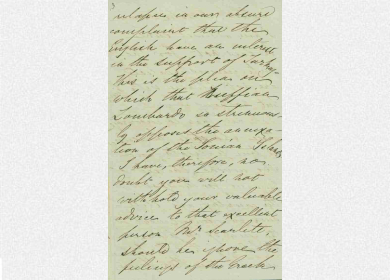 relapse in our absurd
complaint that the
English have an interest
in the support of Turkey
this is the plea on
which that ruffian
Lombardo so strenuous-
ly opposes the annexa-
tion of the Ionian Islands
I have, therefore, no
doubt you will not
withhold your valuable
advice to that excellent
person Mr Scarlett,
should he the
feelings of the Greek